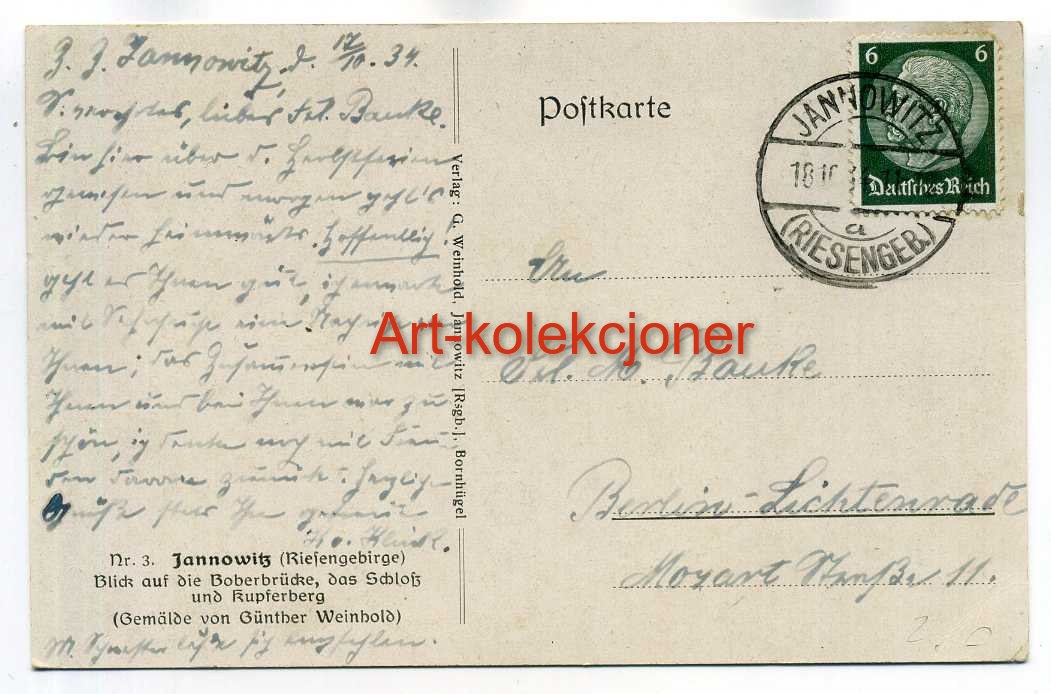 Z. Z. Jannowitz, d. 17/10. 34.
liebes Frl. Bauke.
Bin hier über d. Herbstferien
gewesen und morgen geht's
wieder heimwärts. Hoffentlich
geht es Ihnen gut, ich
mit eine
Ihnen; das Zusammensein mit
Ihnen und bei Ihnen war zu
schön, ich denke noch mit Freu
den daran zurück. Herzliche
Grüße stets Ihr
M. Schwester läßt sich empfehlen.
Nr. 3. Jannowitz (Riesengebirge)
Blick auf die Boberbrücke, das Schloß
und Kupferberg
(Gemälde von Günther Weinhold)
Verlag: G. Weinhold, Jannowitz [Rsgb.], Bornhügel
Postkarte
6 6
Deutsches Reich
JANNOWITZ
18.10.
a
(RIESENGEB.)
An
Frl. M. Bauke
Berlin-Lichtenrade
Mozart Straße 11.
Art-kolekcjoner